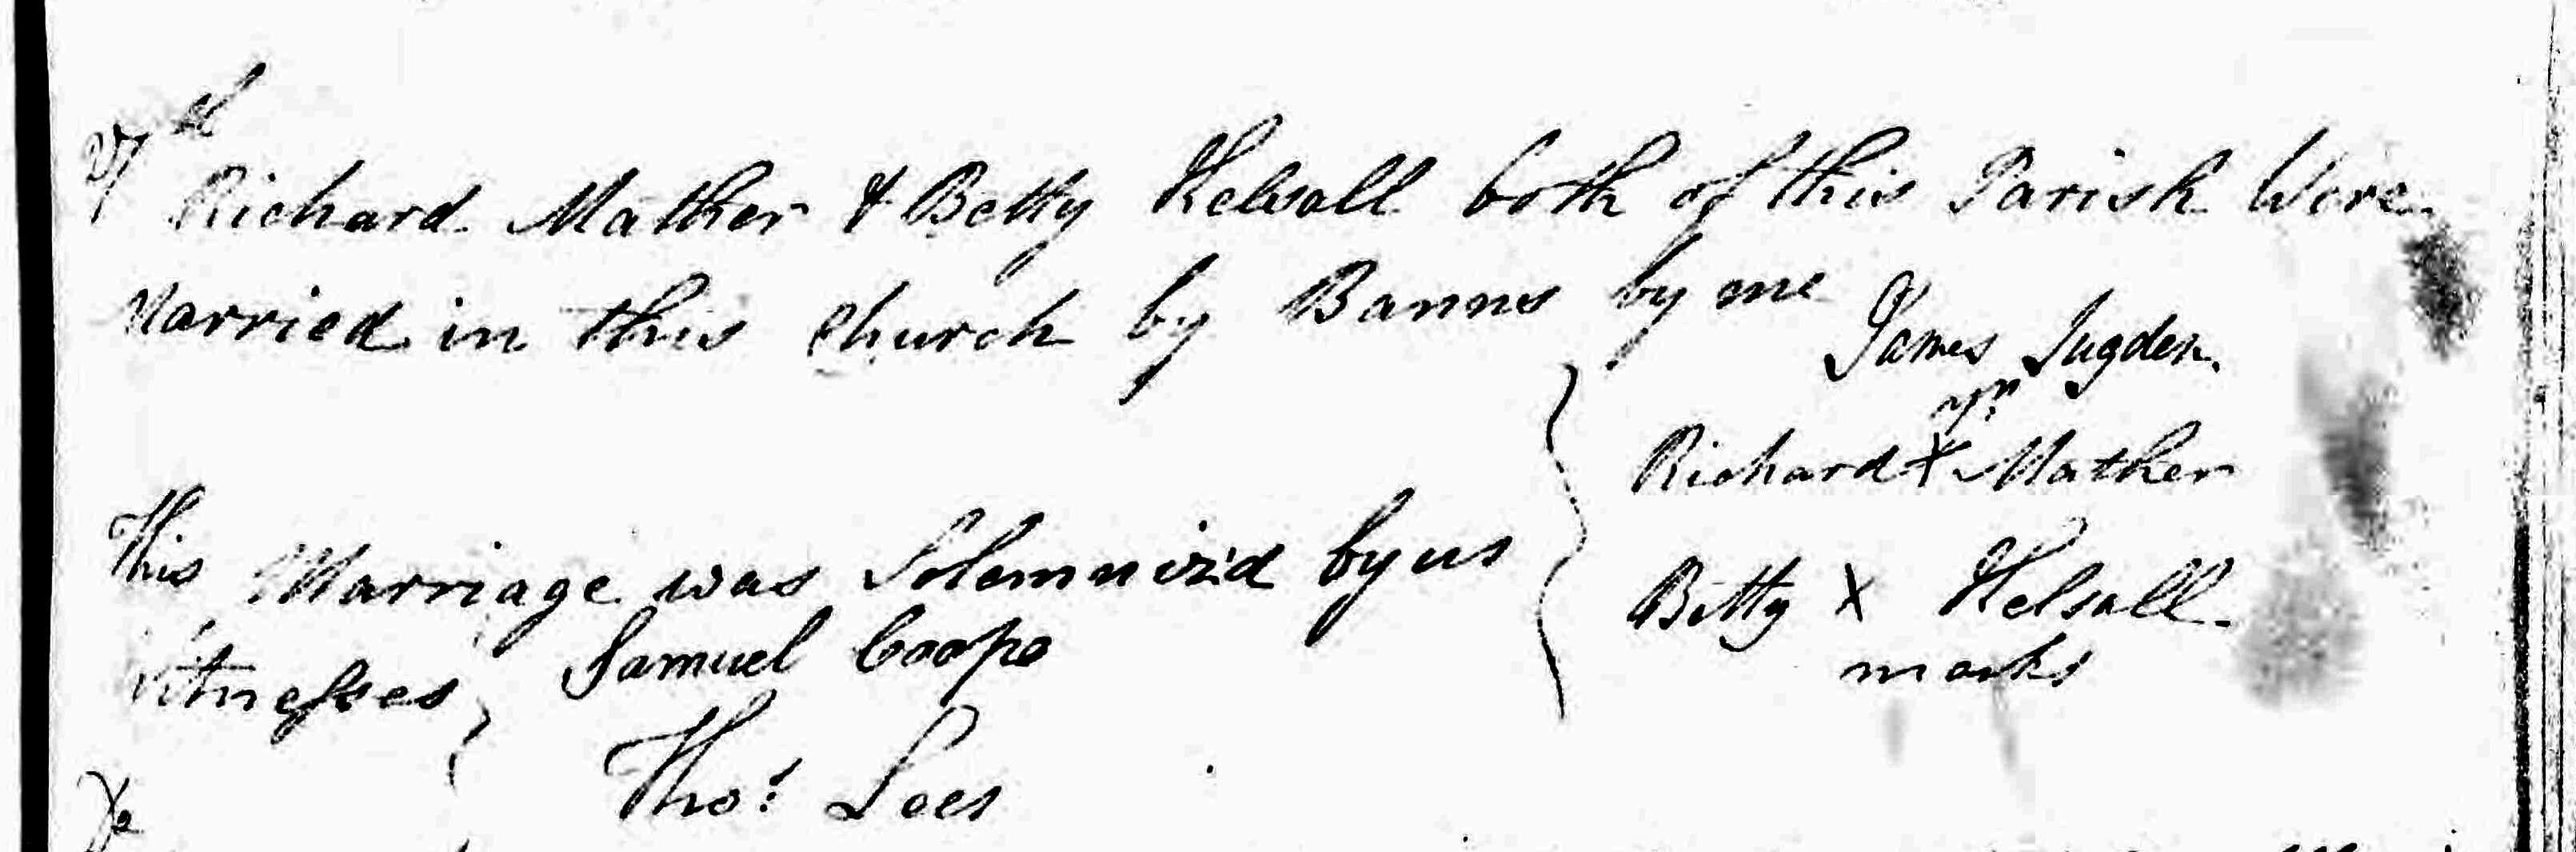 27th
Richard Mather & Betty Kelsall both of this Parish Were
Married in this Church by Banns by me
James Sugden
Richard X Mather
This Marriage was Solemniz'd by us
Betty X Kelsall
marks
Witnesses Samuel Coope
Thos Lees